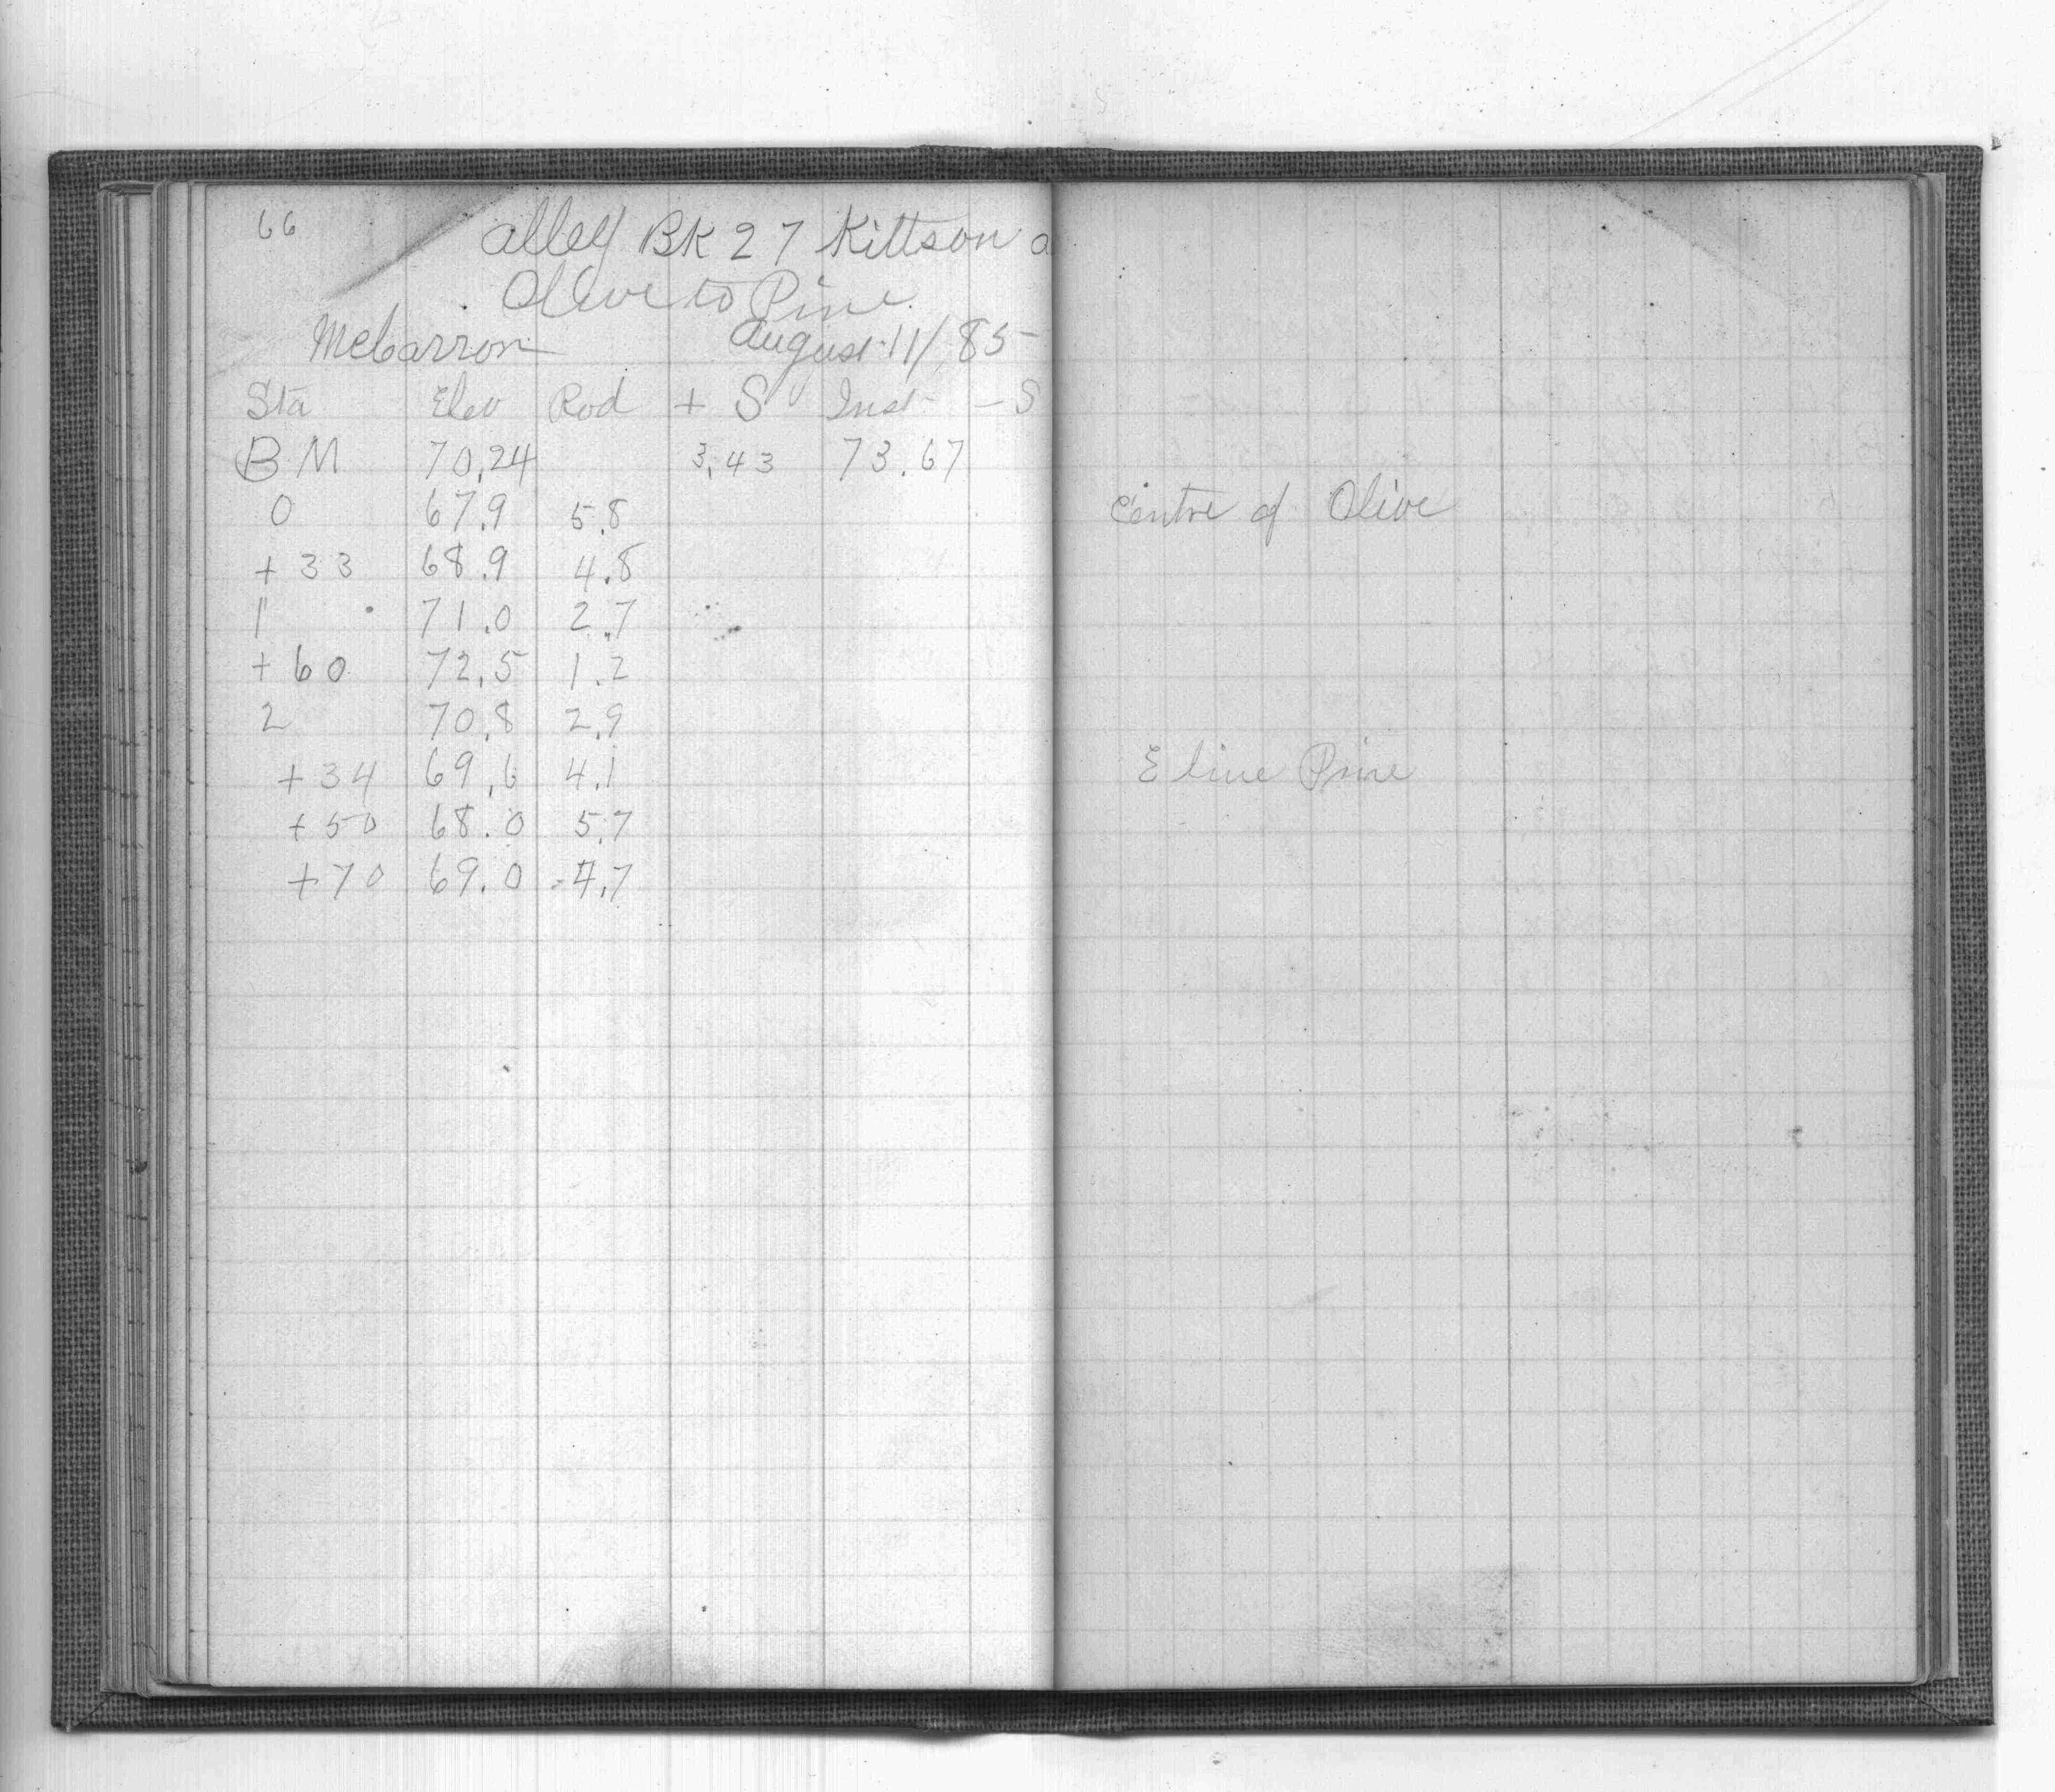 66 alley BK 27 Kittson a
Olive to Pine
McCarron August 11/85
Sta Elev Rod + S Inst - S
BM 70.24 3.43 73.67
0 67.9 5.8 Centre of Olive
+33 68.9 4.8
1 71.0 2.7
+60 72.5 1.2
2 70.8 2.9
+34 69.6 4.1 E line Pine
+50 68.0 5.7
+70 69.0 4.7